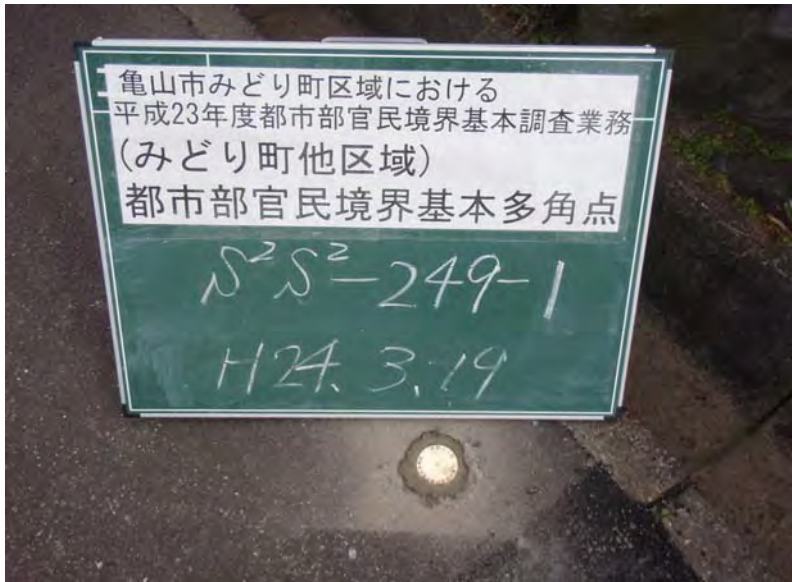 亀山市みどり町区域における
平成23年度都市部官民境界基本調査業務
(みどり町他区域)
都市部官民境界基本多角点
S²S²-249-1
H24.3.19